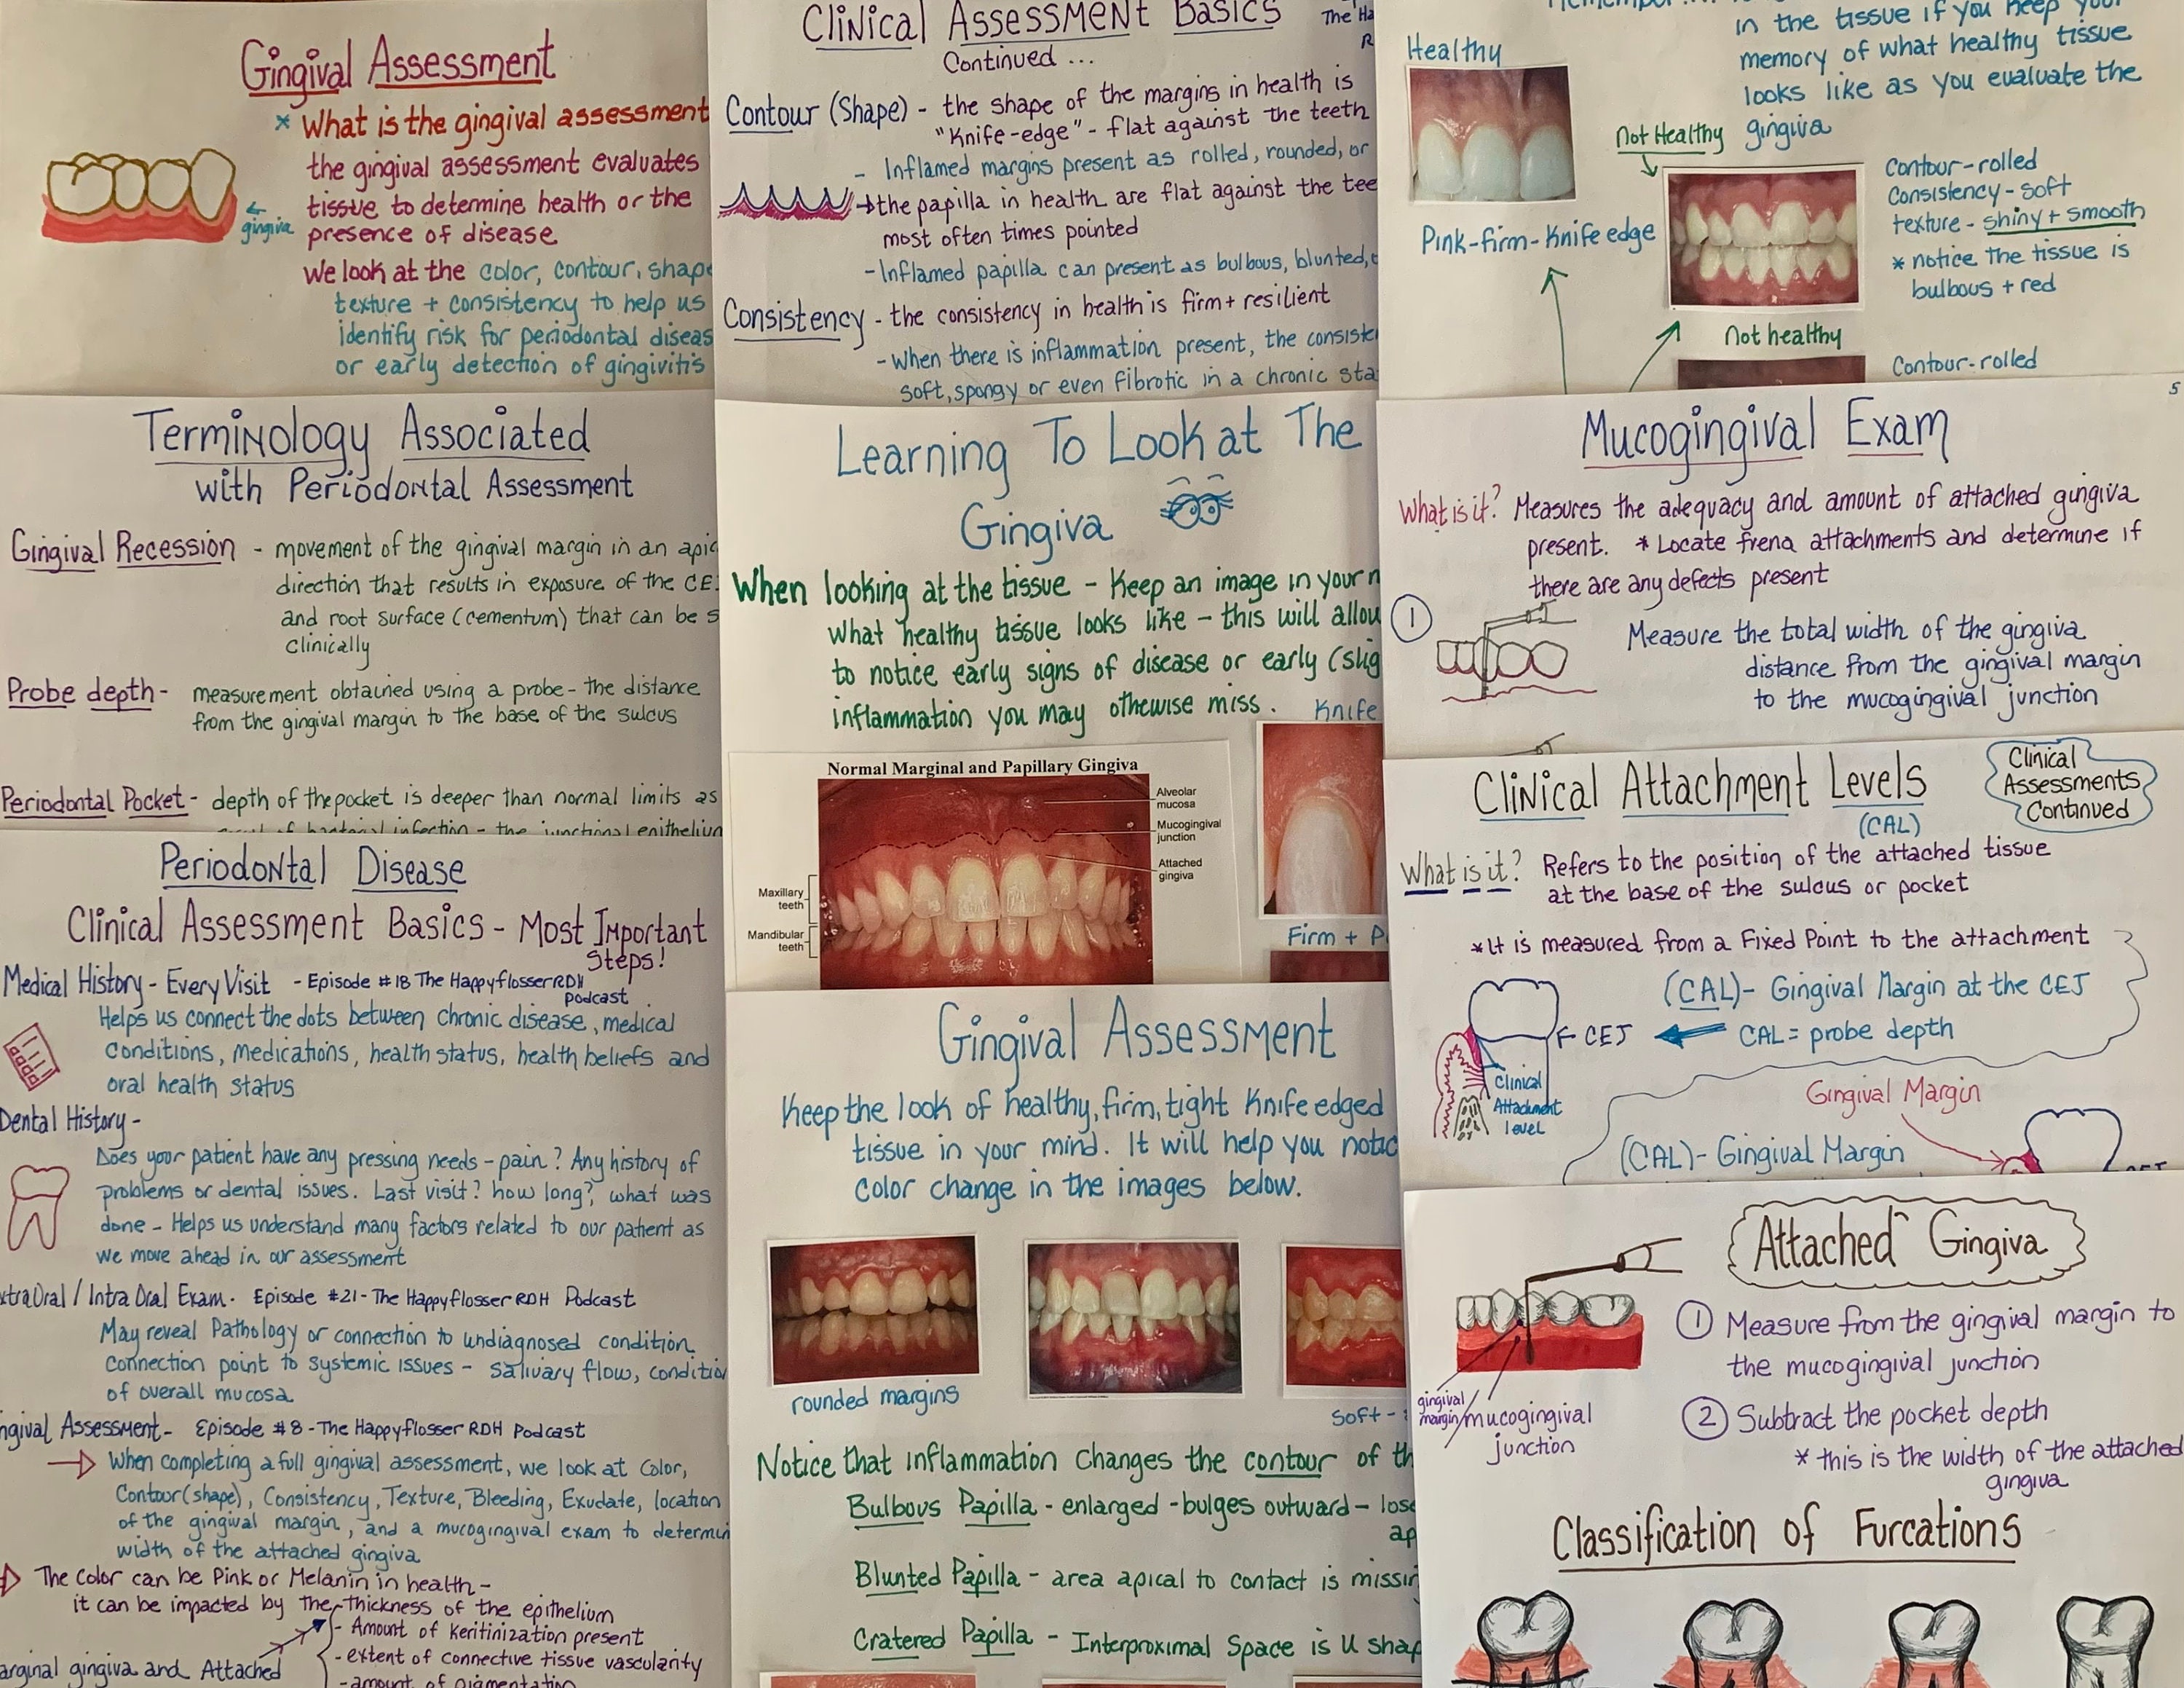 Gingival Assessment
* What is the gingival assessment
the gingival assessment evaluates
tissue to determine health or the
presence of disease
← gingiva
We look at the color, contour, shape
texture + consistency to help us
identify risk for periodontal diseas
or early detection of gingivitis
Terminology Associated
with Periodontal Assessment
Gingival Recession - movement of the gingival margin in an apic
direction that results in exposure of the CE
and root surface (cementum) that can be s
clinically
Probe depth - measurement obtained using a probe - the distance
from the gingival margin to the base of the sulcus
Periodontal Pocket - depth of the pocket is deeper than normal limits as
of bacterial infection - the junctional epithelium
Periodontal Disease
Clinical Assessment Basics - Most Important
Steps!
Medical History - Every Visit - Episode #18 The HappyflosserRDH
podcast
Helps us connect the dots between chronic disease, medical
conditions, medications, health status, health beliefs and
oral health status
Dental History -
Does your patient have any pressing needs - pain? Any history of
problems or dental issues. Last visit? how long? what was
done - Helps us understand many factors related to our patient as
we move ahead in our assessment
xtraOral / Intra Oral Exam. Episode #21 - The Happyflosser RDH Podcast
May reveal Pathology or connection to undiagnosed condition
connection point to systemic issues - salivary flow, condition
of overall mucosa
ngival Assessment - Episode #8 - The Happyflosser RDH Podcast
→ When completing a full gingival assessment, we look at Color,
Contour (shape), Consistency, Texture, Bleeding, Exudate, location
of the gingival margin, and a mucogingival exam to determin
width of the attached gingiva
The color can be Pink or Melanin in health -
it can be impacted by the - thickness of the epithelium
- Amount of Keritinization present
- extent of connective tissue vascularity
- amount of pigmentation
arginal gingiva and Attached
Clinical Assessment Basics
The Ha
R
Continued ...
Contour (Shape) - the shape of the margins in health is
"Knife-edge" - flat against the teeth
- Inflamed margins present as rolled, rounded, or
→ the papilla in health are flat against the tee
most often times pointed
- Inflamed papilla can present as bulbous, blunted,
Consistency - the consistency in health is firm + resilient
- When there is inflammation present, the consiste
soft, spongy or even fibrotic in a chronic sta
Learning To Look at The
Gingiva
When looking at the tissue - Keep an image in your m
what healthy tissue looks like - this will allow
to notice early signs of disease or early (slig
inflammation you may othewise miss.
Knife
Normal Marginal and Papillary Gingiva
Alveolar
mucosa
Mucogingival
junction
Attached
gingiva
Maxillary
teeth
Mandibular
teeth
Firm + P
Gingival Assessment
Keep the look of healthy, firm, tight Knife edged
tissue in your mind. It will help you notic
color change in the images below.
rounded margins
Soft -
Notice that inflammation changes the contour of th
Bulbous Papilla - enlarged - bulges outward - lose
ap
Blunted Papilla - area apical to contact is missin
Cratered Papilla - Interproximal Space is U shap
in the tissue if you keep your
memory of what healthy tissue
looks like as you evaluate the
gingiva
Healthy
Pink-firm-Knife edge
Not Healthy
Contour-rolled
Consistency-soft
texture - shiny + smooth
* notice the tissue is
bulbous + red
Not healthy
Contour-rolled
5
Mucogingival Exam
What is it? Measures the adequacy and amount of attached gingiva
present. * Locate frena attachments and determine if
there are any defects present
1 Measure the total width of the gingiva
distance from the gingival margin
to the mucogingival junction
Clinical Attachment Levels
(CAL)
Clinical
Assessments
Continued
What is it? Refers to the position of the attached tissue
at the base of the sulcus or pocket
* It is measured from a Fixed Point to the attachment
(CAL) - Gingival Margin at the CEJ
← CEJ ← CAL = probe depth
Clinical
Attachment
level
Gingival Margin
(CAL) - Gingival Margin
CEJ
Attached Gingiva
1 Measure from the gingival margin to
the mucogingival junction
gingival
margin
mucogingival
junction
2 Subtract the pocket depth
* this is the width of the attached
gingiva
Classification of Furcations